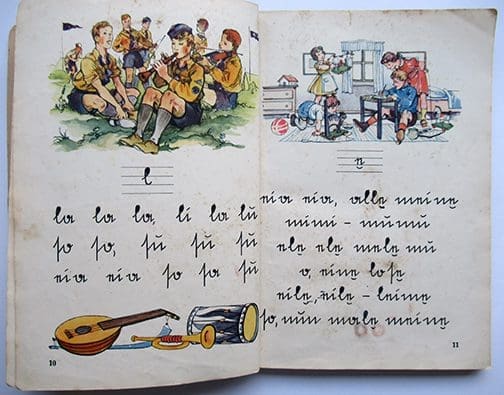 l
la la la, li la lu
so so, su su su
eia eia so sa su
10
e
eia eia, alle meine
mimi – mumu
ele ele mele mu
o, eine lose
eile, eile – leime
so, nun male meine
11